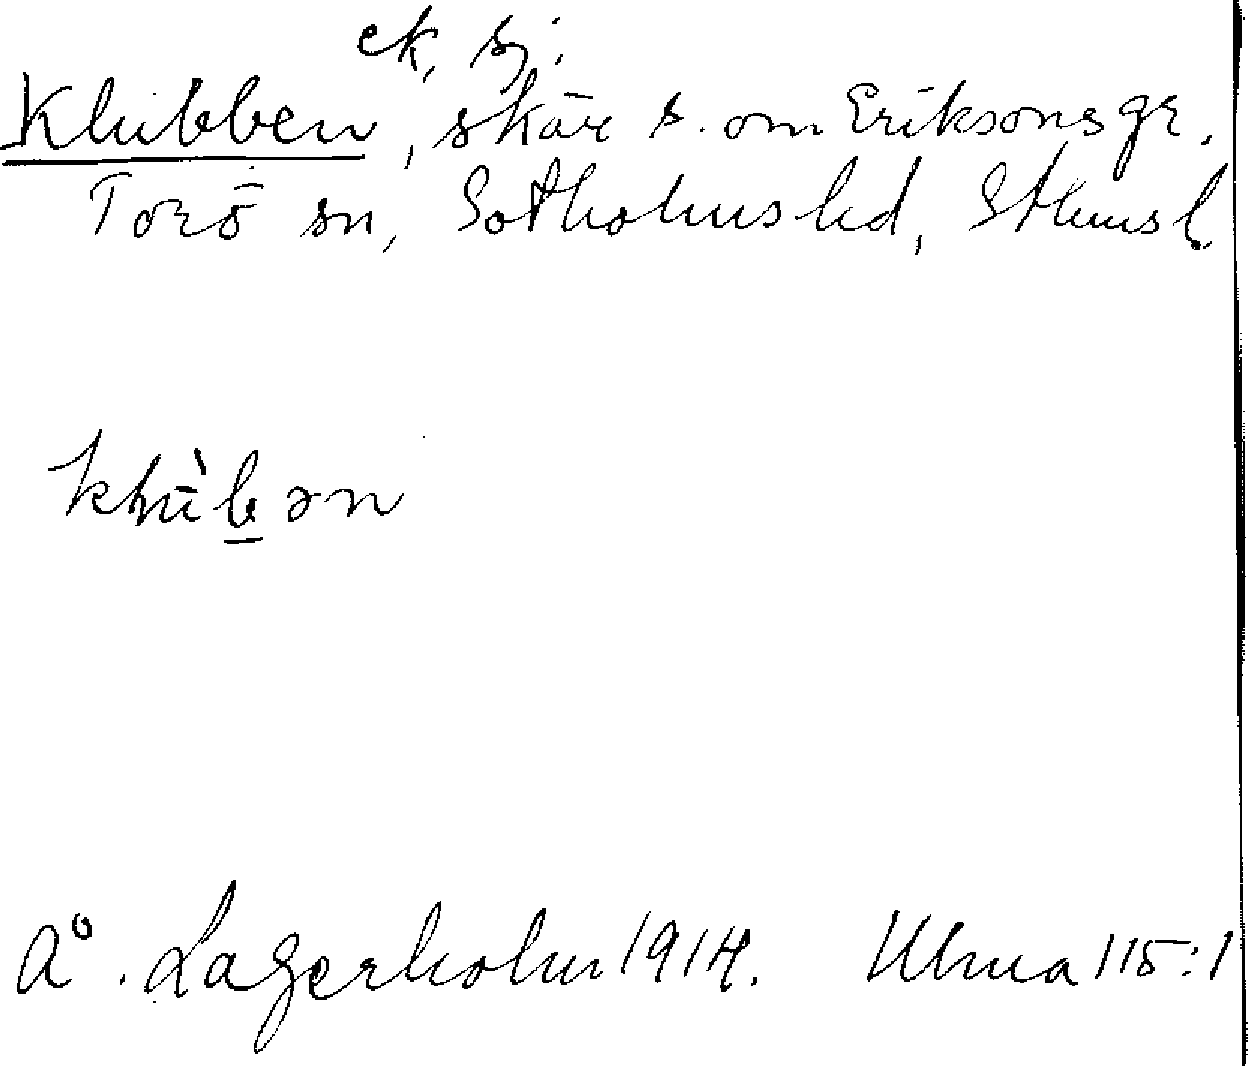 ek, sj.
Klubben, skär s. om Eriksons gr.
Torö sn, Sotholms hd, Sthms l.
Å. Lagerholm 1914. Ulma 115:1